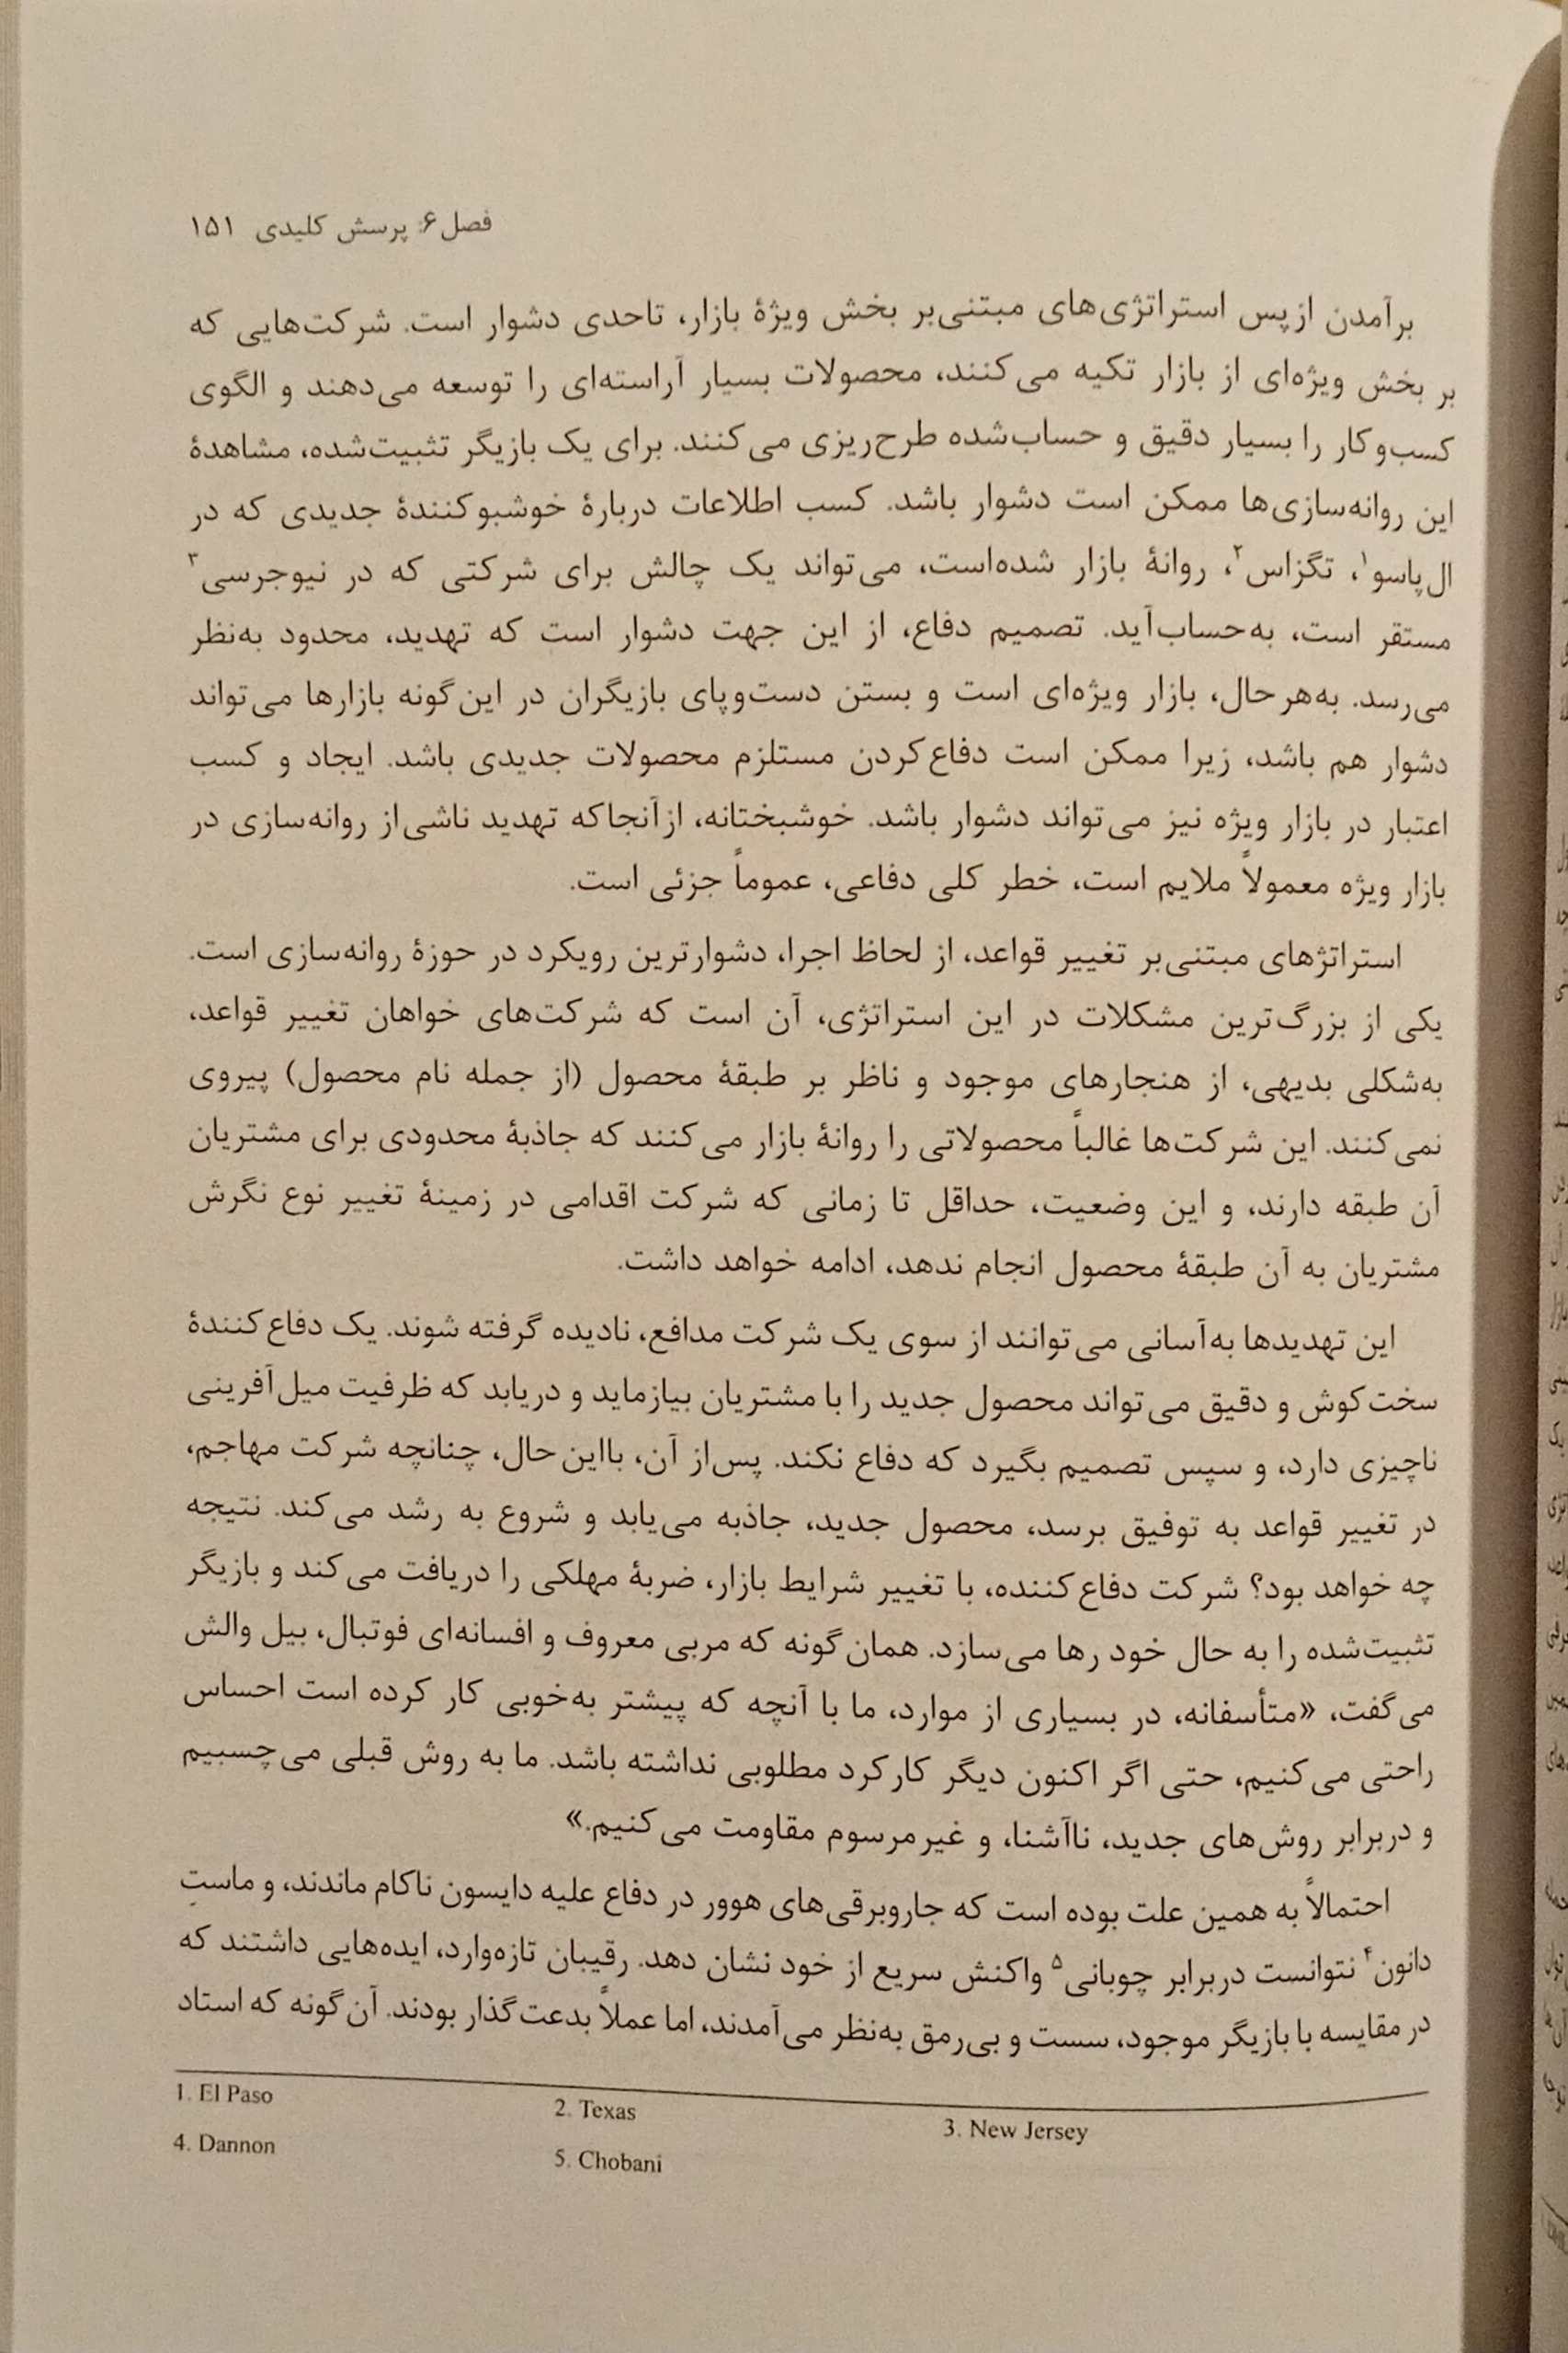 فصل ۶: پرسش کلیدی ۱۵۱
برآمدن ازپس استراتژی‌های مبتنی‌بر بخش ویژهٔ بازار، تاحدی دشوار است. شرکت‌هایی که
بر بخش ویژه‌ای از بازار تکیه می‌کنند، محصولات بسیار آراسته‌ای را توسعه می‌دهند و الگوی
کسب‌وکار را بسیار دقیق و حساب‌شده طرح‌ریزی می‌کنند. برای یک بازیگر تثبیت‌شده، مشاهدهٔ
این روانه‌سازی‌ها ممکن است دشوار باشد. کسب اطلاعات دربارهٔ خوشبوکنندهٔ جدیدی که در
ال‌پاسو۱، تگزاس۲، روانهٔ بازار شده‌است، می‌تواند یک چالش برای شرکتی که در نیوجرسی۳
مستقر است، به‌حساب‌آید. تصمیم دفاع، از این جهت دشوار است که تهدید، محدود به‌نظر
می‌رسد. به‌هرحال، بازار ویژه‌ای است و بستن دست‌وپای بازیگران در این‌گونه بازارها می‌تواند
دشوار هم باشد، زیرا ممکن است دفاع‌کردن مستلزم محصولات جدیدی باشد. ایجاد و کسب
اعتبار در بازار ویژه نیز می‌تواند دشوار باشد. خوشبختانه، ازآنجاکه تهدید ناشی‌از روانه‌سازی در
بازار ویژه معمولاً ملایم است، خطر کلی دفاعی، عموماً جزئی است.
استراتژهای مبتنی‌بر تغییر قواعد، از لحاظ اجرا، دشوارترین رویکرد در حوزهٔ روانه‌سازی است.
یکی از بزرگ‌ترین مشکلات در این استراتژی، آن است که شرکت‌های خواهان تغییر قواعد،
به‌شکلی بدیهی، از هنجارهای موجود و ناظر بر طبقهٔ محصول (از جمله نام محصول) پیروی
نمی‌کنند. این شرکت‌ها غالباً محصولاتی را روانهٔ بازار می‌کنند که جاذبهٔ محدودی برای مشتریان
آن طبقه دارند، و این وضعیت، حداقل تا زمانی که شرکت اقدامی در زمینهٔ تغییر نوع نگرش
مشتریان به آن طبقهٔ محصول انجام ندهد، ادامه خواهد داشت.
این تهدیدها به‌آسانی می‌توانند از سوی یک شرکت مدافع، نادیده گرفته شوند. یک دفاع‌کنندهٔ
سخت‌کوش و دقیق می‌تواند محصول جدید را با مشتریان بیازماید و دریابد که ظرفیت میل‌آفرینی
ناچیزی دارد، و سپس تصمیم بگیرد که دفاع نکند. پس‌از آن، بااین‌حال، چنانچه شرکت مهاجم،
در تغییر قواعد به توفیق برسد، محصول جدید، جاذبه می‌یابد و شروع به رشد می‌کند. نتیجه
چه خواهد بود؟ شرکت دفاع‌کننده، با تغییر شرایط بازار، ضربهٔ مهلکی را دریافت می‌کند و بازیگر
تثبیت‌شده را به حال خود رها می‌سازد. همان‌گونه که مربی معروف و افسانه‌ای فوتبال، بیل والش
می‌گفت، «متأسفانه، در بسیاری از موارد، ما با آنچه که پیشتر به‌خوبی کار کرده است احساس
راحتی می‌کنیم، حتی اگر اکنون دیگر کارکرد مطلوبی نداشته باشد. ما به روش قبلی می‌چسبیم
و دربرابر روش‌های جدید، ناآشنا، و غیرمرسوم مقاومت می‌کنیم.»
احتمالاً به همین علت بوده است که جاروبرقی‌های هوور در دفاع علیه دایسون ناکام ماندند، و ماستِ
دانون۴ نتوانست دربرابر چوبانی۵ واکنش سریع از خود نشان دهد. رقیبان تازه‌وارد، ایده‌هایی داشتند که
در مقایسه با بازیگر موجود، سست و بی‌رمق به‌نظر می‌آمدند، اما عملاً بدعت‌گذار بودند. آن‌گونه که استاد
1. El Paso 2. Texas 3. New Jersey
4. Dannon 5. Chobani